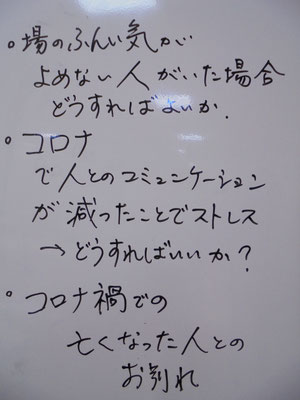 。場のふんい気が
よめない人がいた場合
どうすればよいか.
。コロナ
で人とのコミュニケーション
が減ったことでストレス
→どうすればいいか?
。コロナ禍での
亡くなった人との
お別れ